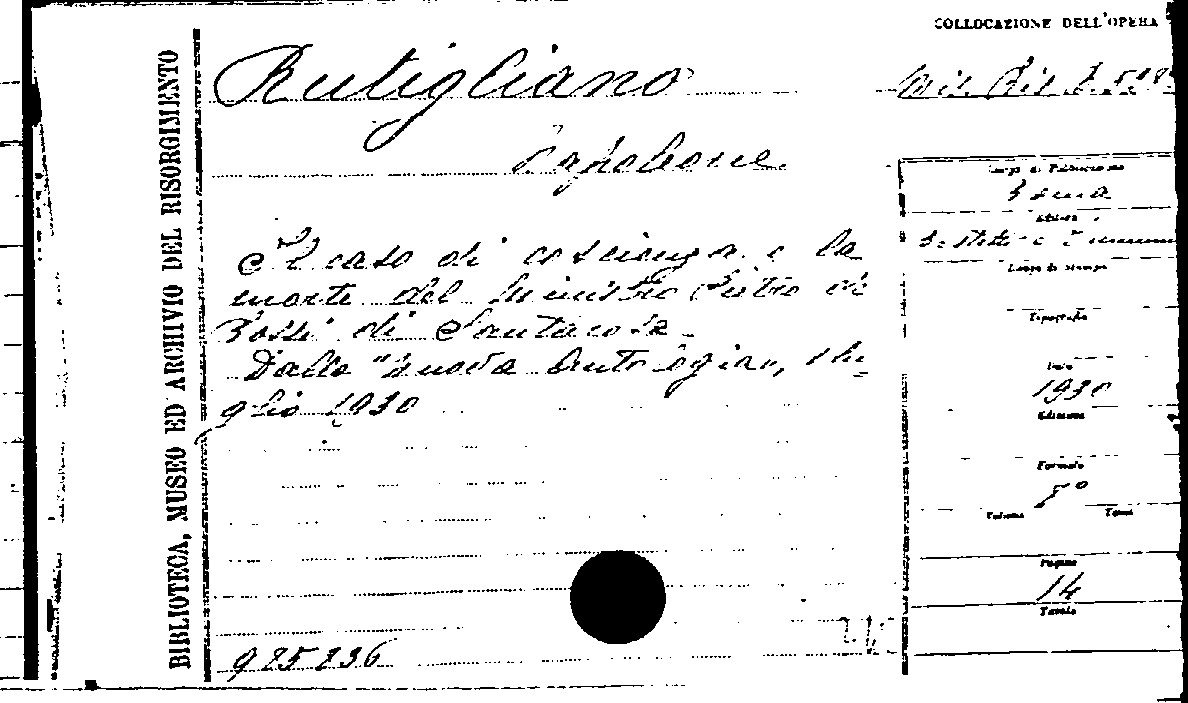 COLLOCAZIONE DELL'OPERA
BIBLIOTECA, MUSEO ED ARCHIVIO DEL RISORGIMENTO
Rutigliano
Napoleone
Il caso di coscienza e la
morte del Ministro Pietro de
Rossi di Santarosa
Dalla "Nuova Antologia", Lu=
glio 1930
925836
Luogo di Pubblicazione
Roma
Editore
Luogo di Stampa
Tipografia
Data
1930
Edizione
Formato
8º
Volume Tomi
Pagine
14
Tavole